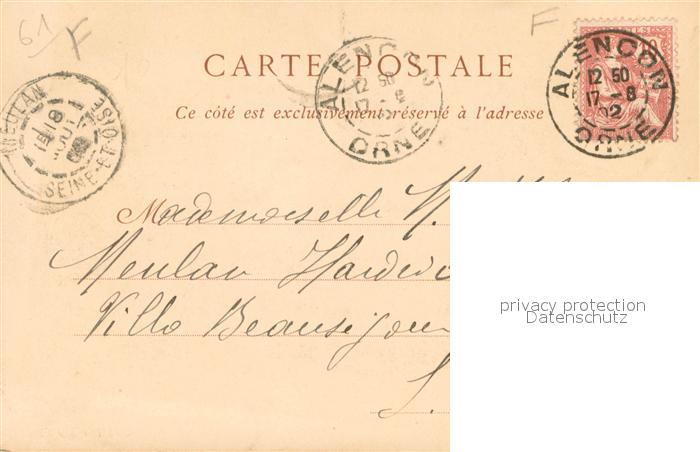 61
F
F
CARTE POSTALE
Ce côté est exclusivement réservé à l'adresse
ALENCON
12 50
17 - 8
ORNE
ALENCON
12 50
17 - 8
02
ORNE
10
MEULAN
18
AOUT
SEINE-ET-OISE
Mademoiselle M.
Meulan Hardri
Villa Beauséjour
S.
privacy protection
Datenschutz